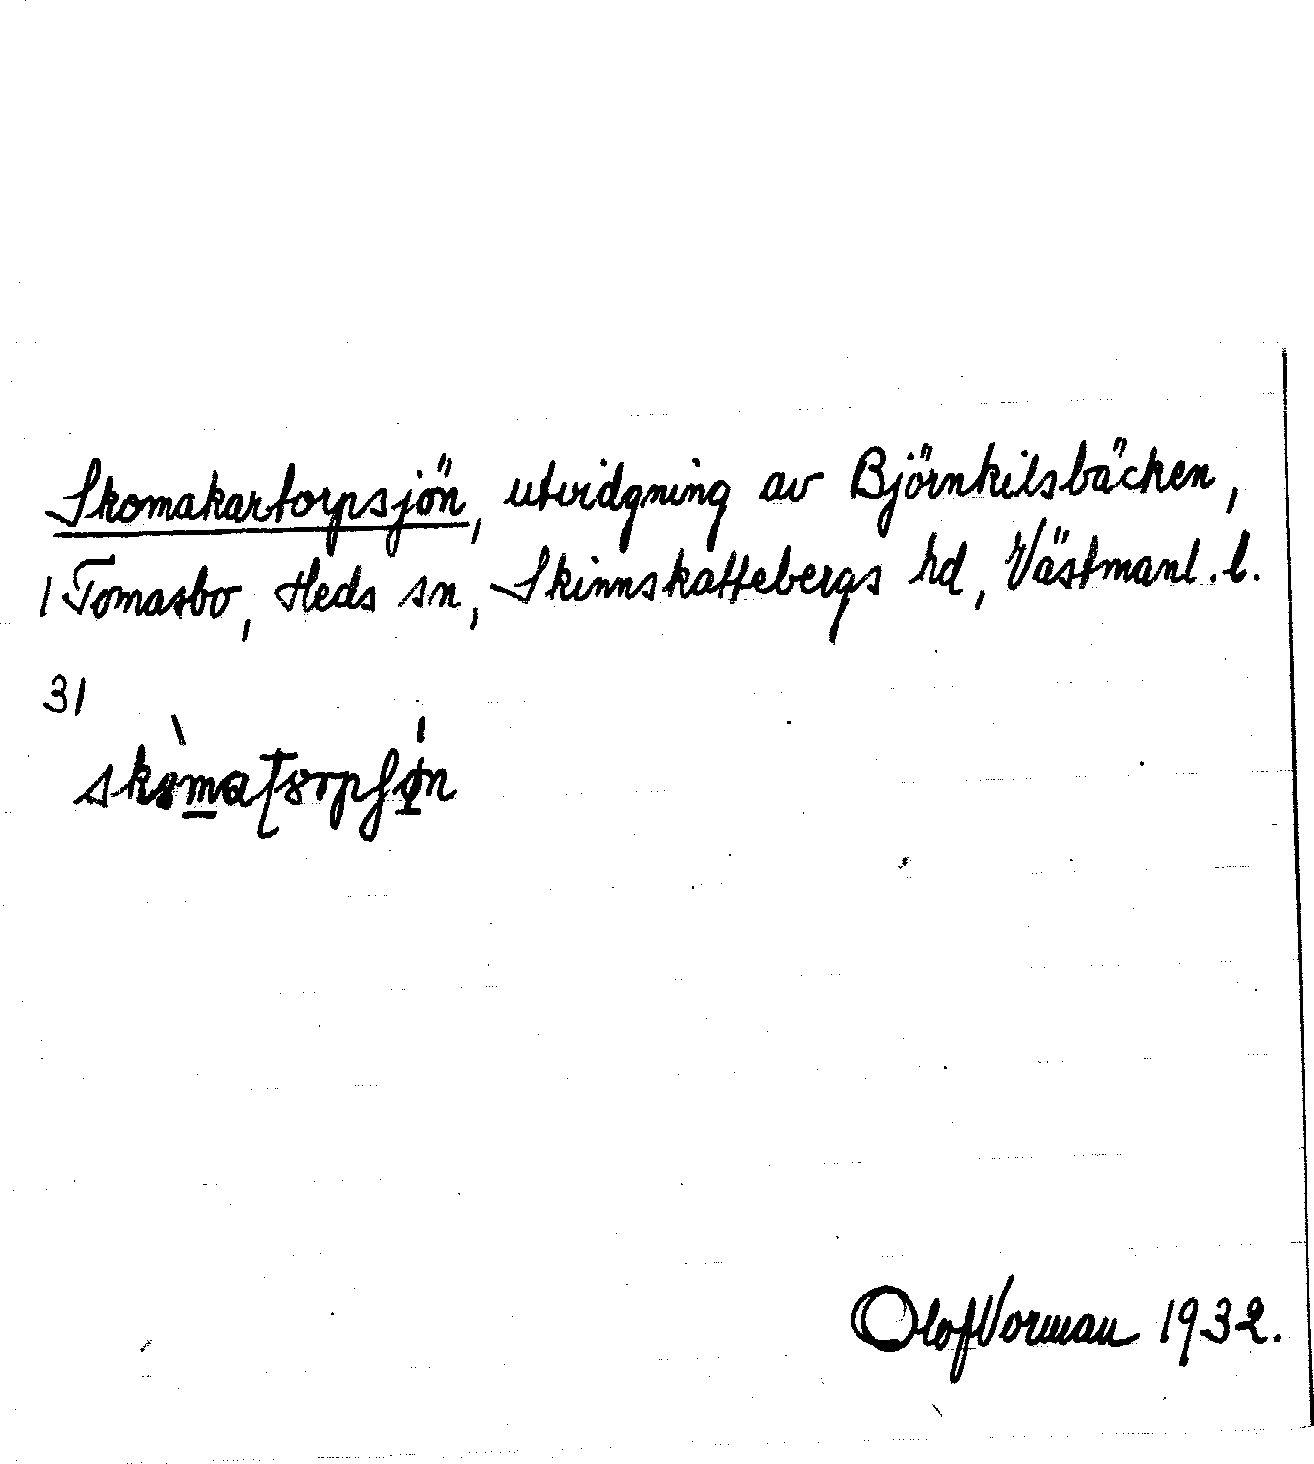 Skomakartorpsjön, utvidgning av Björnkilsbäcken,
/ Tomasbo, Heds sn, Skinnskattebergs hd, Västmanl. l.
31
Olof Vorman 1932.